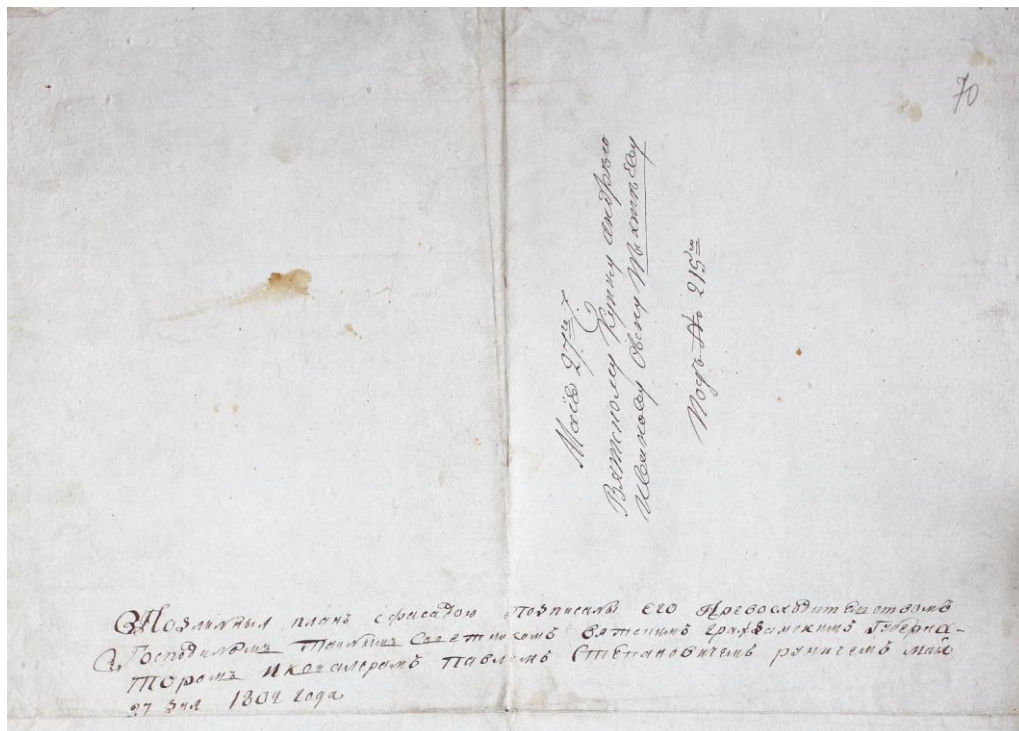 70
Маія 27го
Вятскому Купцу андрѣю
Иванову Сыну
Подъ № 215мъ
Подлинный планъ с фасадою подписанъ его Превосходительствомъ
Господиномъ Тайнымъ Советникомъ вятскимъ гражданскимъ Губерна-
торомъ и кавалеромъ Павломъ Степановичемъ руничемъ маія
27 дня 1804 года